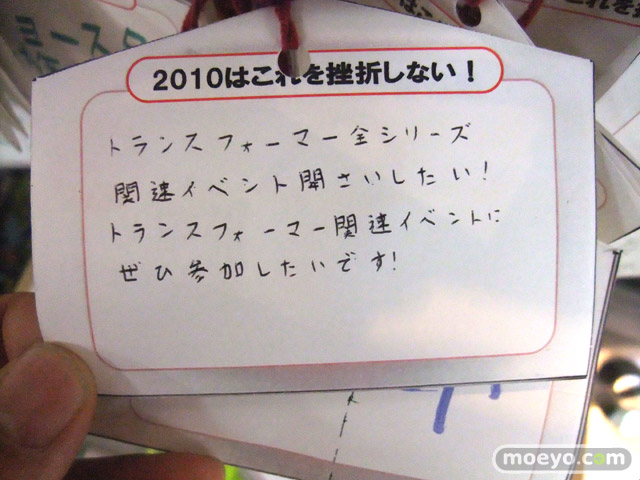 2010はこれを挫折しない！
トランスフォーマー全シリーズ
関速イベント開さいしたい！
トランスフォーマー関速イベントに
ぜひ参加したいです！
moeyo.com